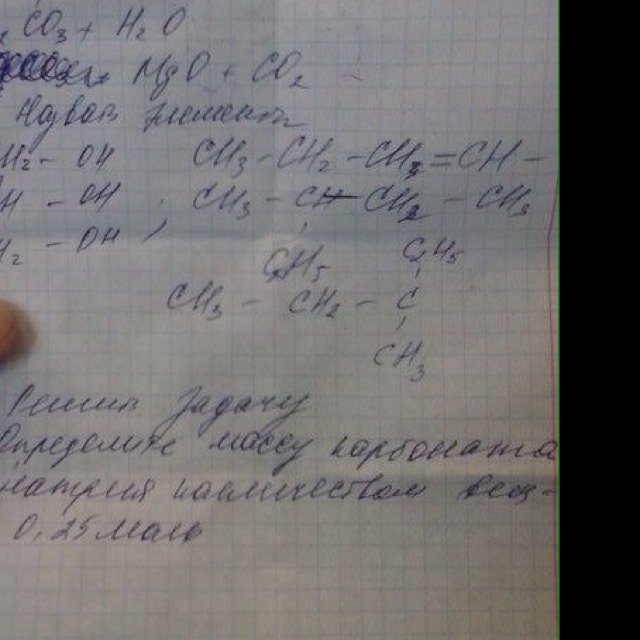 CO₃ + H₂O
MgO + CO₂
Назвать
H₂ - OH CH₃ - CH₂ - CH₂ = CH -
H - OH , CH₃ - CH - CH₂ - CH₃
H₂ - OH , C₂H₅ C₂H₅
CH₃ - CH₂ - C
CH₃
Решить задачу
Определите массу карбоната
натрия количеством вещ-
0,25 моль